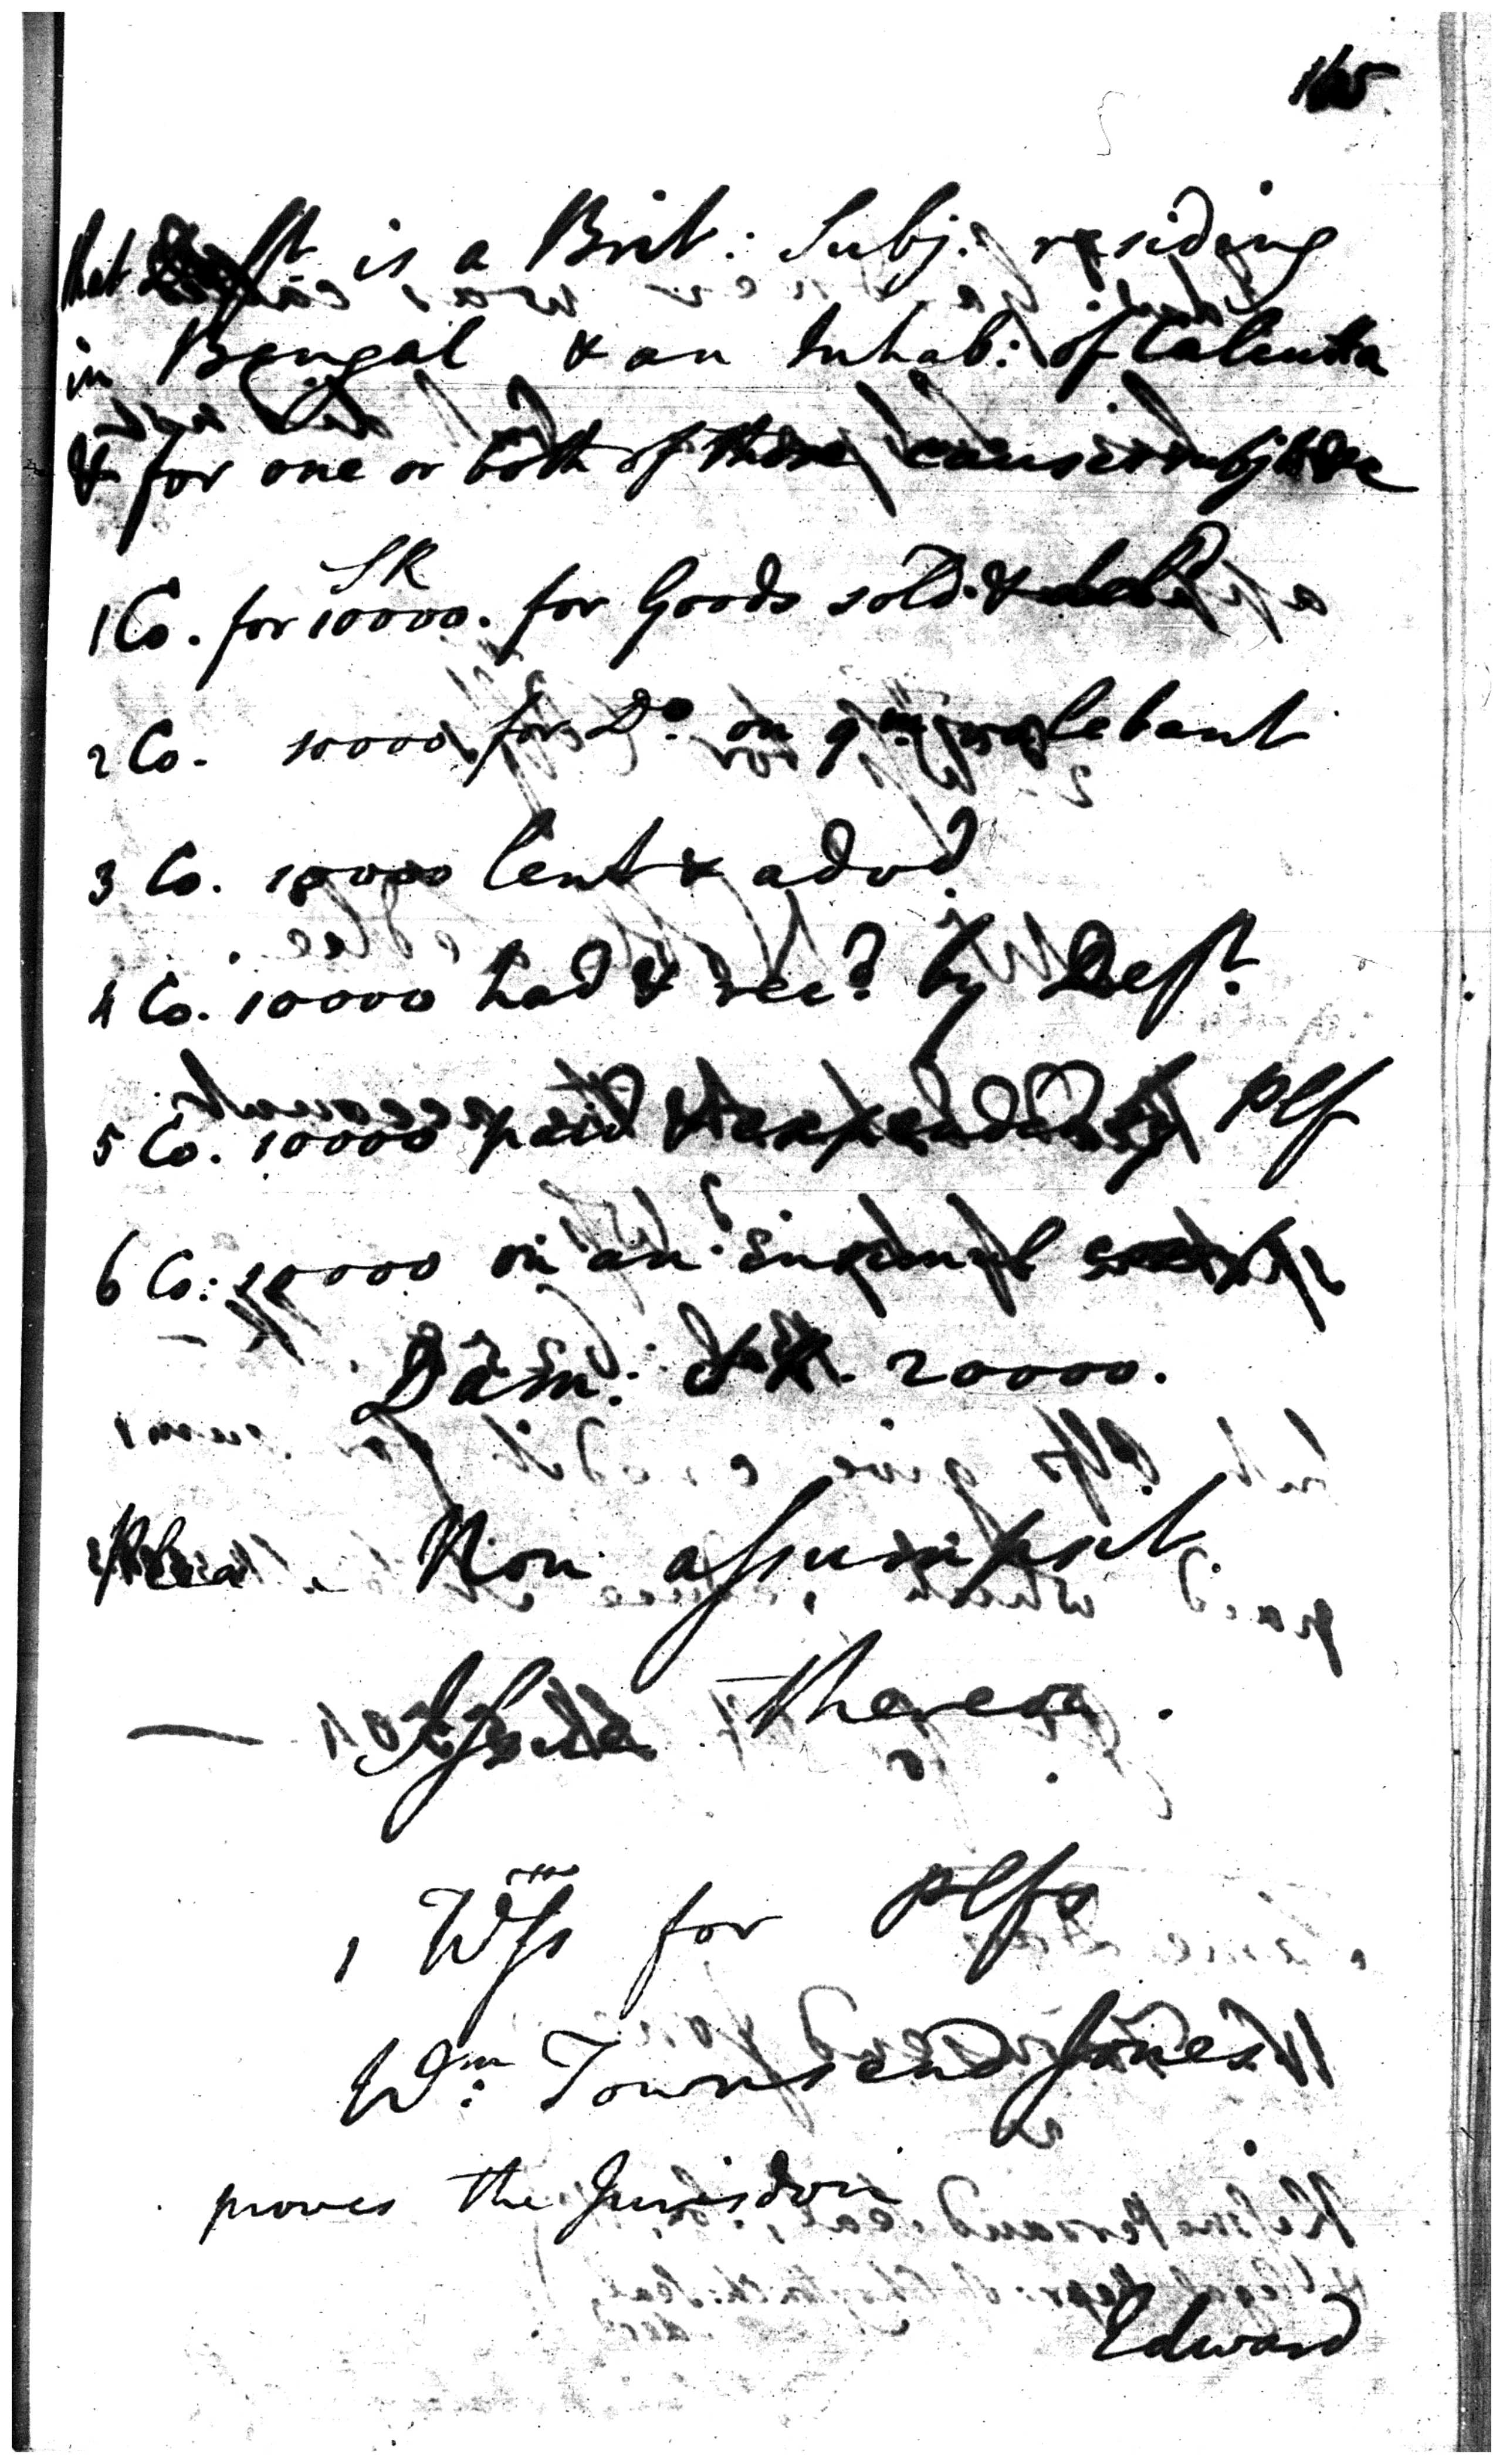 165
that Deft is a Brit: Subj. residing
in Bengal & an Inhab: of Calcutta
& for one or both of these causes subject &c
SR
1 Co. for 10000. for Goods sold & deld
2 Co. 10000 for Do. on qm. valebant
3 Co. 10000 lent & advd
4 Co. 10000 had & recd by Deft
5 Co. 10000 paid & expended by Plf
6 Co: 10000 on an insiml
Dam: 20000.
Plea. Non assumpsit
Issue thereon.
1 Wss for Plfs
Wm: Townsend Jones
proves the Jurisdon
Edward